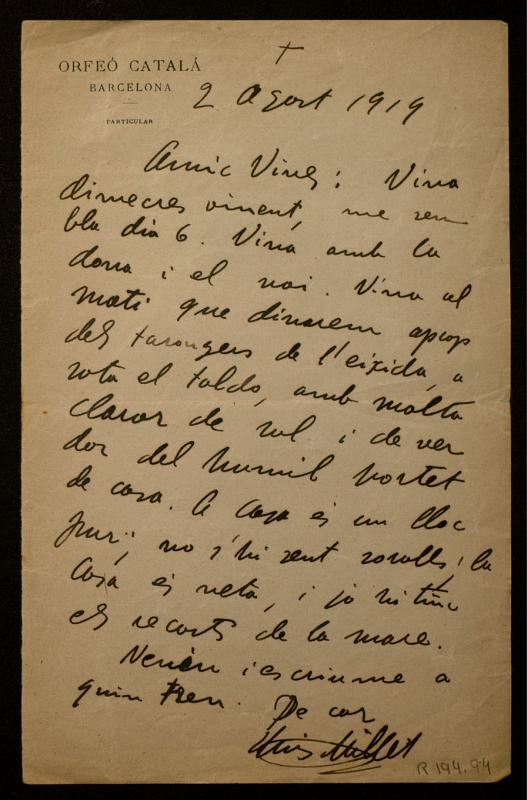 +
ORFEÓ CATALÁ
BARCELONA
PARTICULAR
2 Agost 1919
Amic Vives: Vina
dimecres vinent, me sem
bla dia 6. Vina amb la
dona i el noi. Vina al
matí que dinarem aprop
dels tarongers de l'eixida, a
sota el taldo, amb molta
claror de sol i de ver
dor del humil hortet
de casa. A casa és un lloc
pur; no s'hi sent soroll; la
casa és neta, i jo hi tinc
els recorts de la mare.
Veniu i escriume a
quin tren. De cor
Lluis Millet
R 194.94